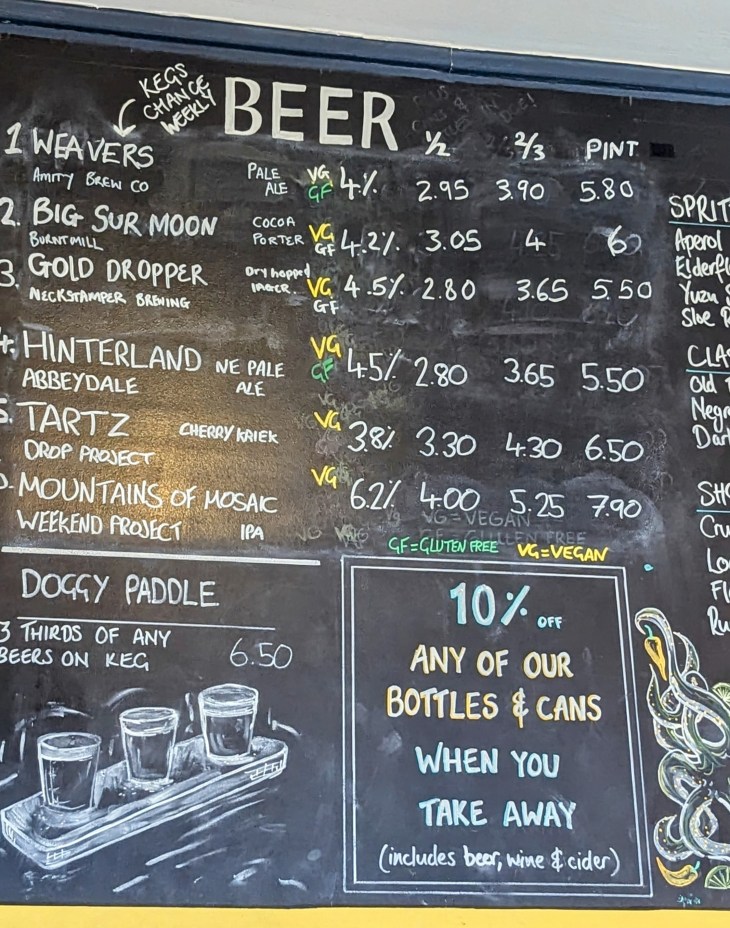 KEGS
CHANGE
WEEKLY
BEER
1/2 2/3 PINT
1 WEAVERS PALE ALE VG GF 4% 2.95 3.90 5.80
AMITY BREW CO
2. BIG SUR MOON COCOA PORTER VG GF 4.2% 3.05 4 6
BURNT MILL
3. GOLD DROPPER Dry hopped LAGER. VG GF 4.5% 2.80 3.65 5.50
NECKSTAMPER BREWING
4. HINTERLAND NE PALE ALE VG GF 4.5% 2.80 3.65 5.50
ABBEYDALE
5. TARTZ CHERRY KRIEK VG 3.8% 3.30 4.30 6.50
DROP PROJECT
MOUNTAINS OF MOSAIC IPA VG 6.2% 4.00 5.25 7.90
WEEKEND PROJECT
VG=VEGAN
GF=GLUTEN FREE VG=VEGAN
DOGGY PADDLE
3 THIRDS OF ANY
BEERS ON KEG 6.50
10% OFF
ANY OF OUR
BOTTLES & CANS
WHEN YOU
TAKE AWAY
(includes beer, wine & cider)
SPRIT
Aperol
Elderfl
Yuzu S
Sloe
CLA
Old
Negr
Dar
SH
Cru
Lo
Fl
Ru